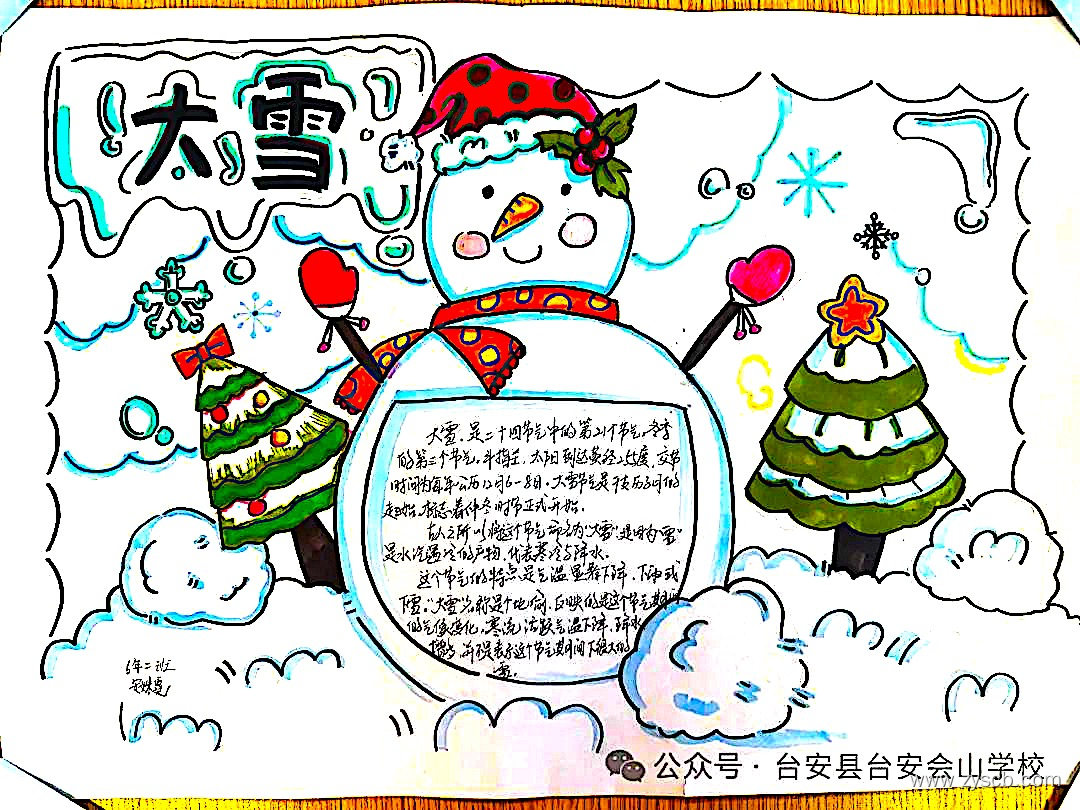 大雪
大雪,是二十四节气中的第21个节气,冬季
的第三个节气,斗指壬,太阳到达黄经255度,交节
时间为每年公历12月6-8日。大雪节气是干支历子月的
起始,标志着仲冬时节正式开始。
古人之所以将这个节气命名为"大雪"是因为"雪"
是水汽遇冷的产物,代表寒冷与降水。
这个节气的特点是气温显著下降、下雨或
下雪。"大雪"名称是个比喻,反映的是这个节气期间
的气候变化,寒流活跃气温下降,降水
增多,并不是表示这个节气期间下很大的
雪。
6年二班
公众号·台安县台安会山学校
www.zyscb.com